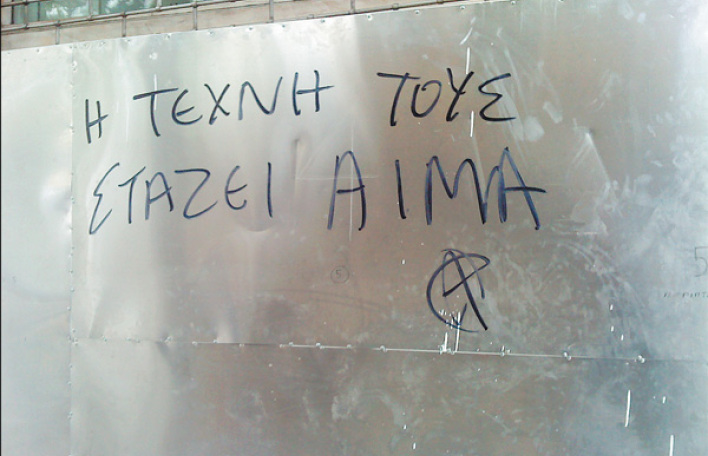 Η ΤΕΧΝΗ ΤΟΥΣ
ΣΤΑΖΕΙ ΑΙΜΑ
Ⓐ
5
5